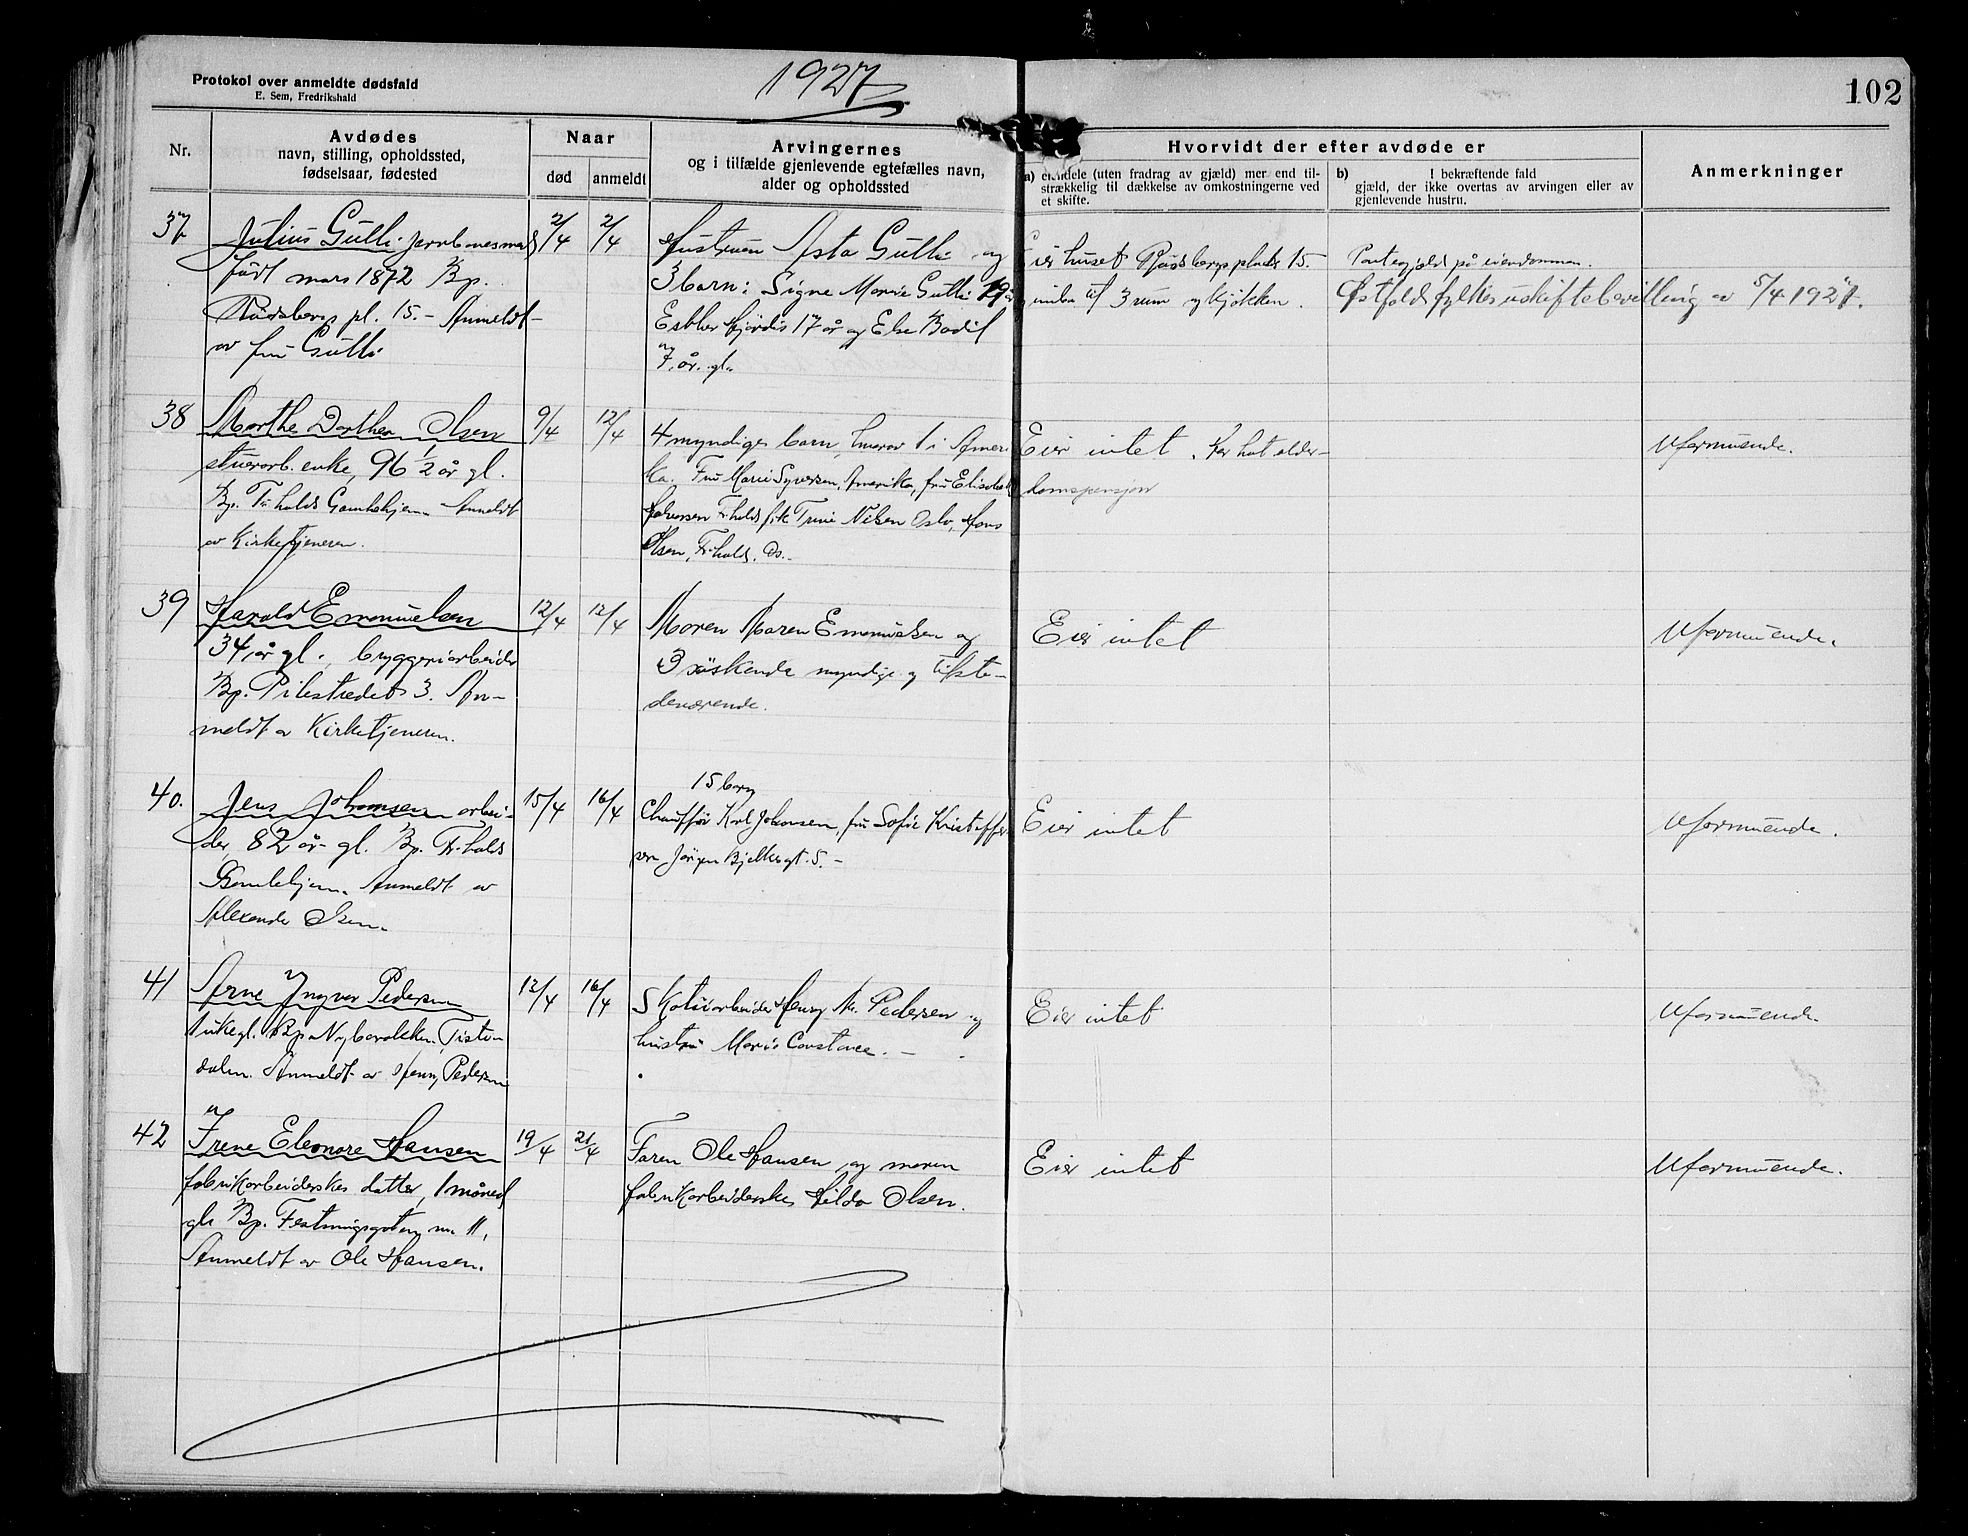 Protokol over anmeldte dødsfald
E. Sem, Fredrikshald
1927
102
Nr.
Avdødes
navn, stilling, opholdssted,
fødselsaar, fødested
Naar
død
anmeldt
Arvingernes
og i tilfælde gjenlevende egtefælles navn,
alder og opholdssted
Hvorvidt der efter avdøde er
a) eiendele (uten fradrag av gjæld) mer end til-
strækkelig til dækkelse av omkostningerne ved
et skifte.
b) I bekræftende fald
gjæld, der ikke overtas av arvingen eller av
gjenlevende hustru.
Anmerkninger
37
Julius Gulli
født mars 1872 Bp.
Rødsbergs pl. 15. – Anmeldt
av fru Gulli
2/4
2/4
Hustruen Asta Gulli og
3 barn: Signe Marie Gulli 19 år
Esther Hjørdis 17 år og Else Bodil
7 år gl.
Eier huset Rødsbergs plads 15.
3 rum og kjøkken.
Pantegjæld på eiendommen.
Østfold fylkes uskiftebevilling av 5/4 1927.
38
Marthe Dorthea Olsen
enke, 96 1/2 år gl.
Bp. Fr.halds Gamlehjem. Anmeldt
av Kirketjeneren.
9/4
12/4
4 myndige barn, hvorav 1 i Ameri-
ka. Fru Marie Syversen, Amerika, fru Elisabeth
Johansen Fr.hald, frk Trine Nilsen Oslo, Hans
Olsen, Fr.hald. Ds.
Eier intet. Har hat alder-
domspensjon
Uformuende.
39
Harald Emanuelsen
34 år gl., bryggeriarbeider
Bp. Pilestrædet 3. An-
meldt av Kirketjeneren.
12/4
12/4
Moren Maren Emanuelsen og
3 søskende myndige og tilste-
deværende.
Eier intet
Uformuende.
40.
Jens Johansen arbei-
der 82 år gl. Bp. Fr.halds
Gamlehjem. Anmeldt av
Alexander Olsen.
15/4
16/4
15 barn
Chauffør Karl Johansen, fru Sofie Kristoffer-
sen Jørgen Bjelkesgt. 5. –
Eier intet
Uformuende.
41
Arne Yngvar Pedersen
1 uke gl. Bp. Tiste-
dalen. Anmeldt av Henry Pedersen
12/4
16/4
Skotøiarbeider Henry M. Pedersen og
hustru Marie Constance. –
Eier intet
Uformuende.
42
Irene Eleonore Hansen
fabrikarbeiderskes datter, 1 måned
gl. Bp. Festningsgaten nr. 11.
Anmeldt av Ole Hansen.
19/4
21/4
Faren Ole Hansen og moren
fabrikarbeiderske Hilda Olsen.
Eier intet
Uformuende.